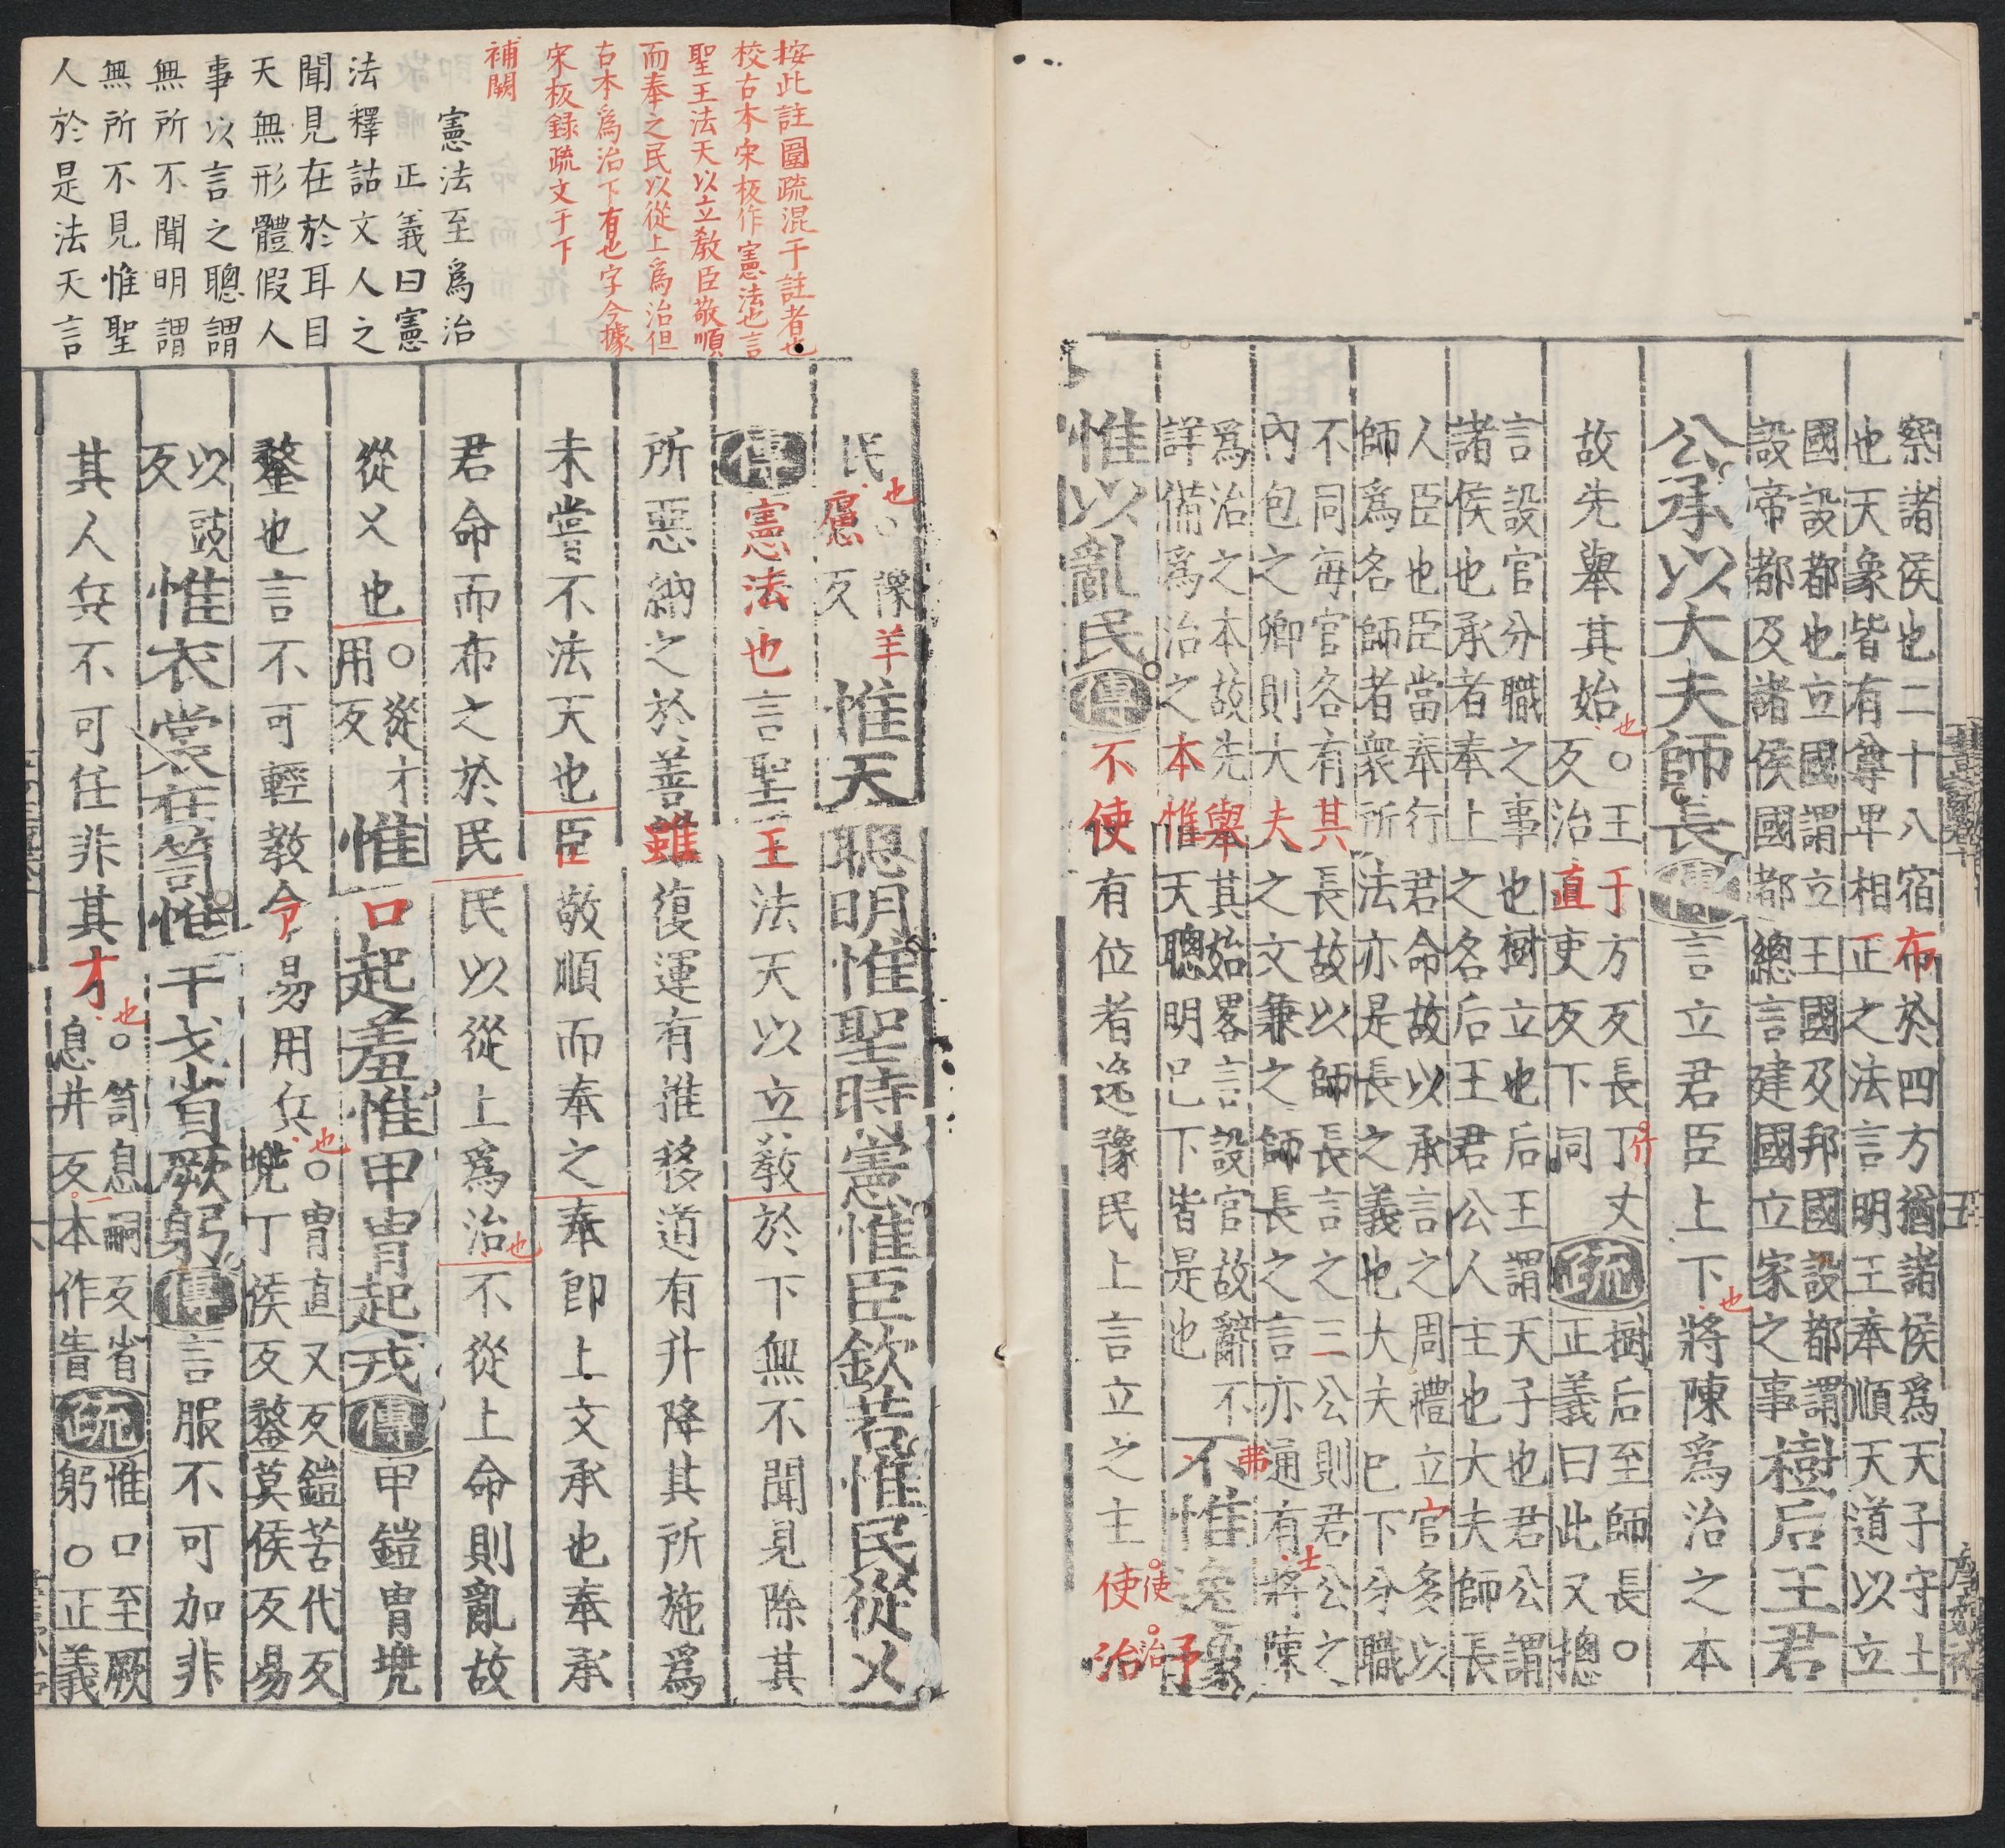 察諸侯也二十八宿布於四方猶諸侯爲天子守土
也天象皆有尊卑相正之法言明王奉順天道以立
國設都也立國謂立王國及邦國設都謂
設帝都及諸侯國都總言建國立家之事樹后王君
公承以大夫師長傳言立君臣上下也將陳爲治之本
故先舉其始也○王于方反長丁丈
反治直吏反下同疏樹后至師長○
正義曰此又摠
言設官分職之事也樹立也后王謂天子也君公謂
諸侯也承者奉上之名后王君公人主也大夫師長
人臣也臣當奉行君命故以承言之周禮立官多以
師爲名師者衆所法亦是長之義也大夫已下分職
不同每官各有其長故以師長言之三公則君公之
內包之卿則大夫之文兼之師長之言亦通有士將陳
爲治之本故先舉其始畧言設官故辭不
詳備爲治之本惟天聰明已下皆是也不惟逸豫
惟以亂民傳不使有位者逸豫民上言立之主使治
按此註圍疏混于註者也
校古本宋板作憲法也言
聖王法天以立教臣敬順
而奉之民以從上爲治但
古本爲治下有也字今據
宋板録疏文于下
補闕
憲法至爲治
正義曰憲
法釋詁文人之
聞見在於耳目
天無形體假人
事以言之聰謂
無所不聞明謂
無所不見惟聖
人於是法天言
民也○豫羊
慮反惟天聰明惟聖時憲惟臣欽若惟民從乂
傳憲法也言聖王法天以立教於下無不聞見除其
所惡納之於善雖復運有推移道有升降其所施爲
未嘗不法天也臣敬順而奉之奉即上文承也奉承
君命而布之於民民以從上爲治也不從上命則亂故
從乂也○從才
用反惟口起羞惟甲冑起戎傳甲鎧冑兜
鍪也言不可輕教令易用兵也○冑直又反鎧苦代反
兜丁侯反鍪莫侯反易
以豉
反惟衣裳在笥惟干戈省厥躬傳言服不可加非
其人兵不可任非其才也○笥息嗣反省
息井反一本作眚疏惟口至厥
躬○正義